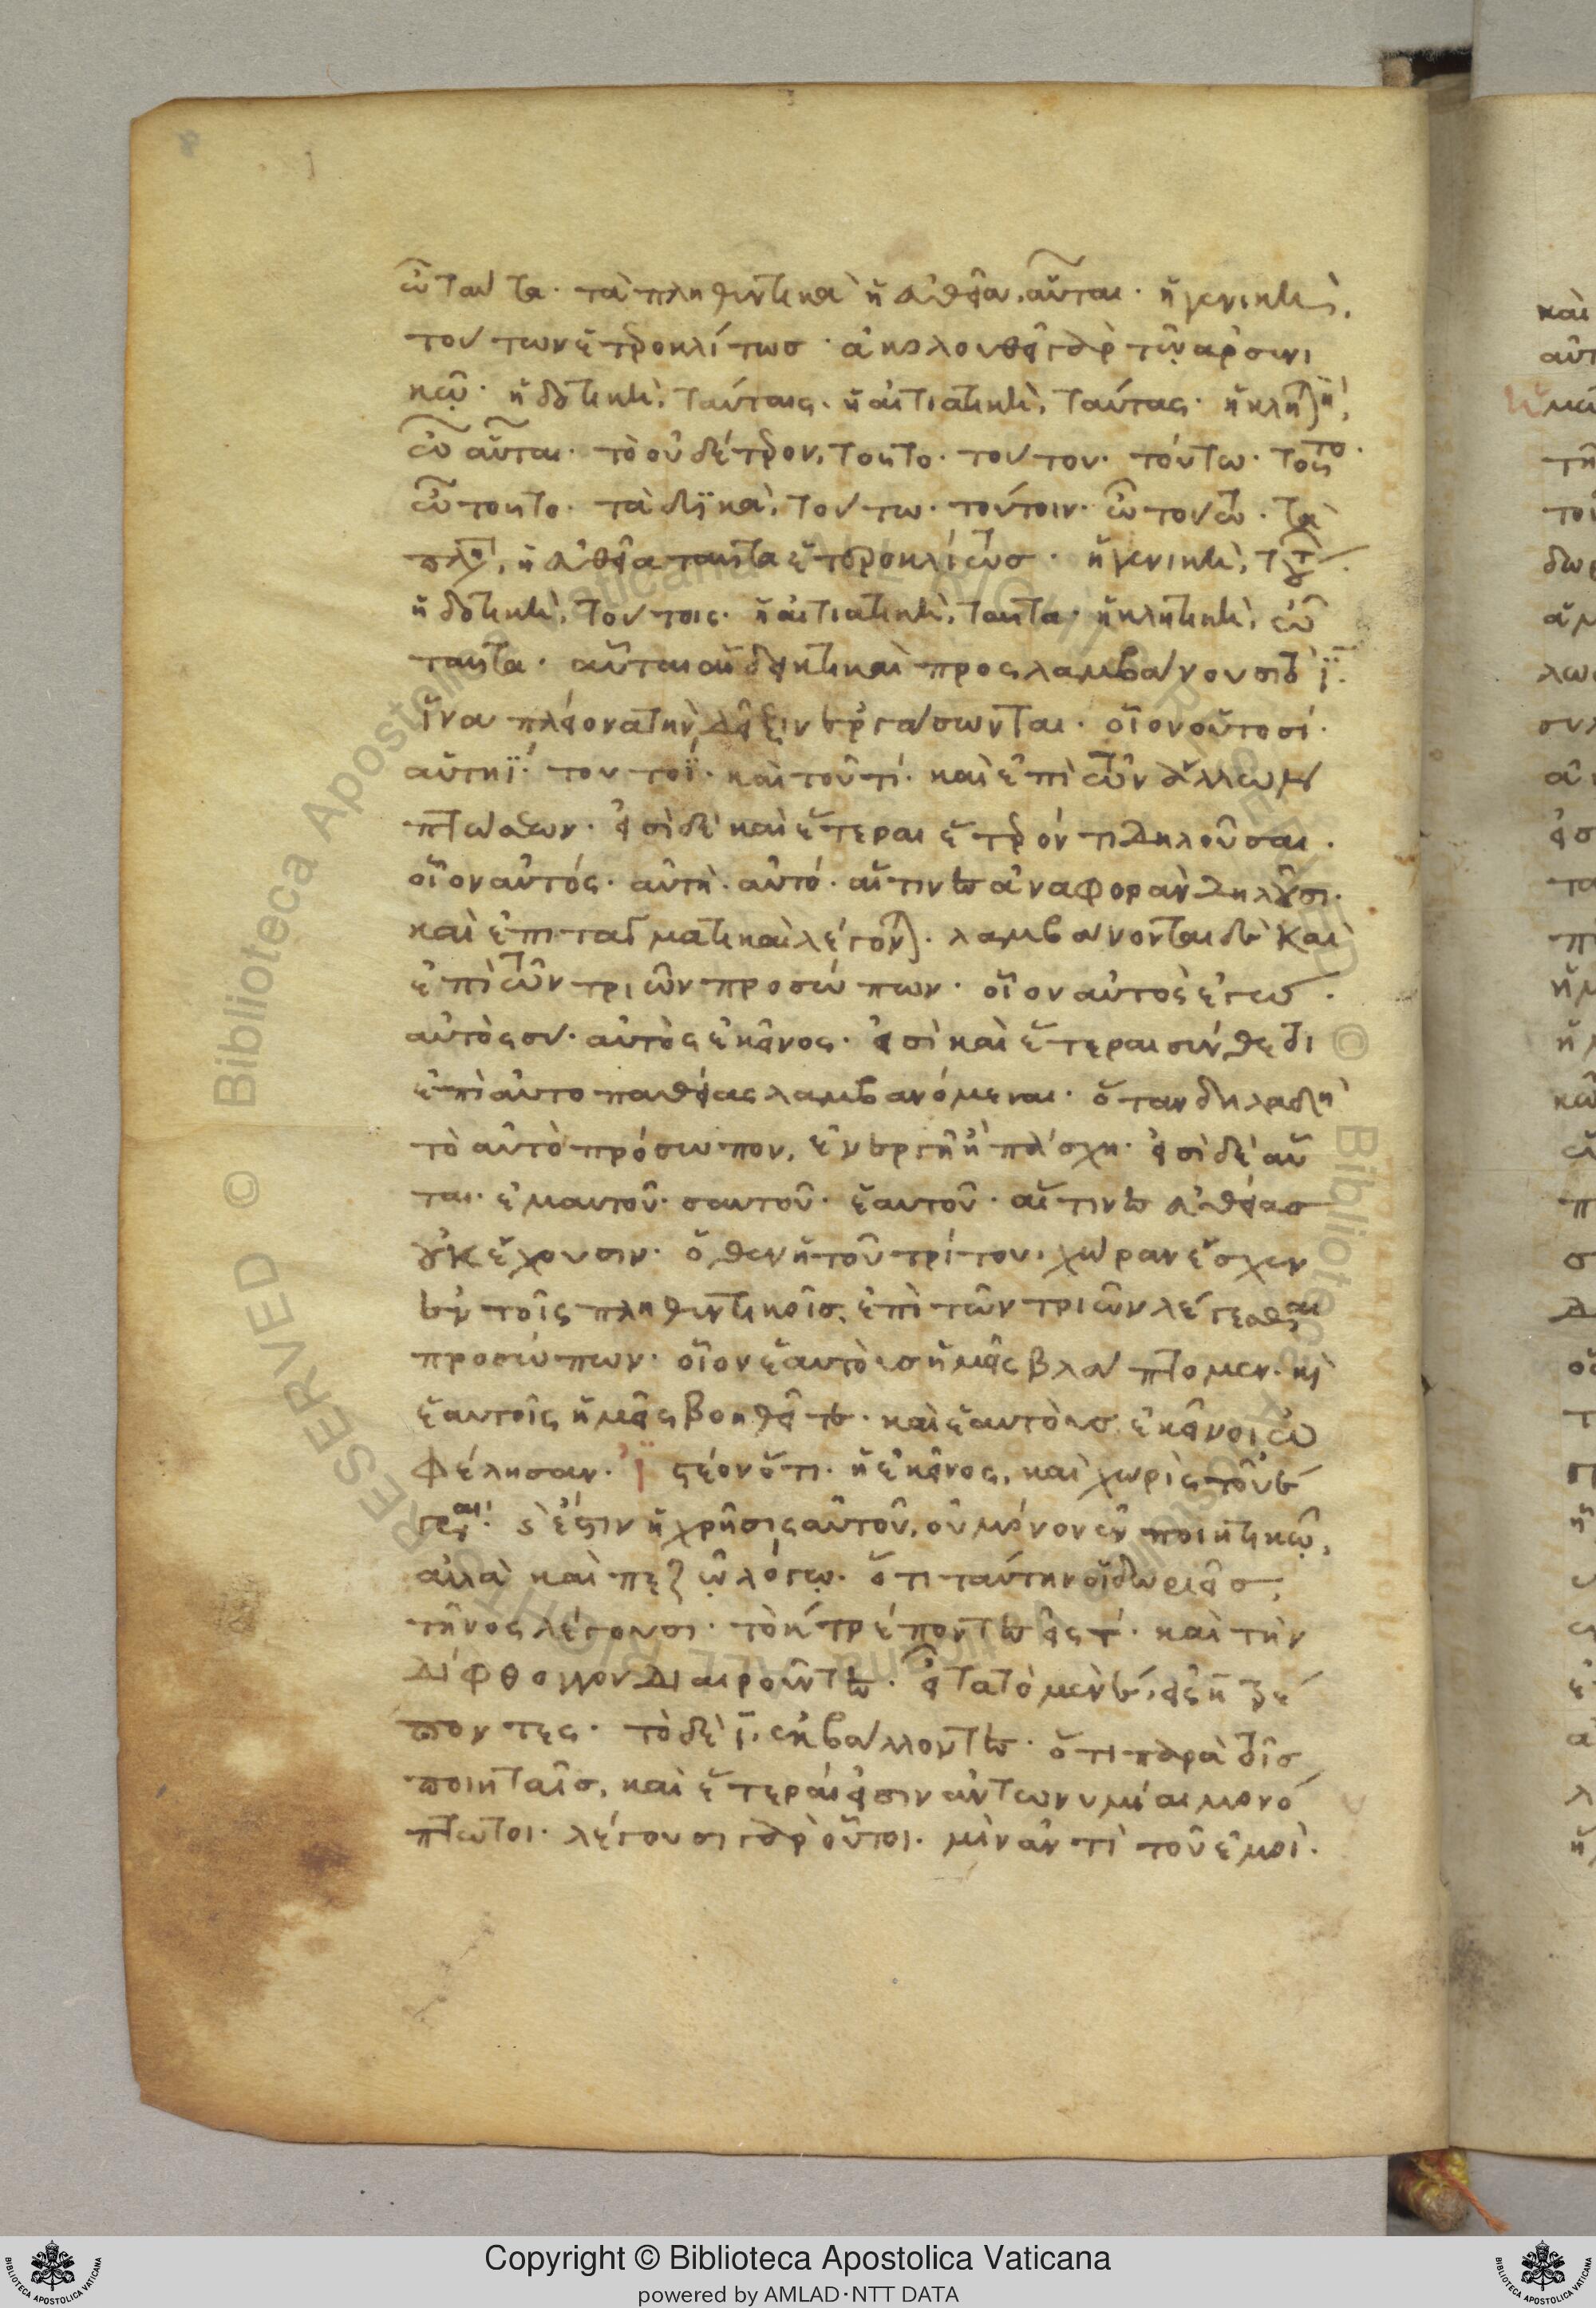 ὦ ταύτα· τὰ πληθυντικὰ ἡ εὐθεῖα, αὗται· ἡ γενικὴ,
τούτων ἑτεροκλίτως· ἀκολουθεῖ γὰρ τῷ ἀρσενι
κῷ· ἡ δοτικὴ, ταύταις· ἡ αἰτιατικὴ, ταύτας· ἡ κλητικὴ,
ὦ αὗται· τὸ οὐδέτερον, τοῦτο· τούτου· τούτω· τοῦτο·
ὦ τοῦτο· τὰ δυϊκὰ, τούτω· τούτοιν· ὦ τούτω· τὰ
πλη, ἡ εὐθεῖα ταῦτα ἑτεροκλίτως· ἡ γενικὴ, τούτων·
ἡ δοτικὴ, τούτοις· ἡ αἰτιατικὴ, ταῦτα· ἡ κλητικὴ, ὦ
ταῦτα· αὗται αἱ δεικτικαὶ προσλαμβάνουσι τὸ ϊ·
ἵνα πλείονα τὴν δεῖξιν ἐργάσωνται· οἷον οὑτοσί·
αὕτηΐ· τουτοΐ· καὶ τουτί· καὶ ἐπὶ τῶν ἄλλων
πτώσεων· εἰσὶ δὲ καὶ ἕτεραι ἕτερόν τι δηλοῦσαι·
οἷον αὐτός· αὐτὴ· αὐτό· αἵτινες ἀναφορὰν δηλοῦσι·
καὶ ἐπιταγματικαὶ λέγονται· λαμβάνονται δὲ καὶ
ἐπὶ τῶν τριῶν προσώπων· οἷον αὐτὸς ἐγώ·
αὐτὸς σύ· αὐτὸς ἐκεῖνος· εἰσὶ καὶ ἕτεραι σύνθετοι
ἐπὶ αὐτοπαθείας λαμβανόμεναι· ὅταν δηλαδὴ
τὸ αὐτὸ πρόσωπον, ἐνεργῆ ἢ πάσχη· εἰσὶ δὲ αὗ
ται· ἐμαυτοῦ· σαυτοῦ· ἑαυτοῦ· αἵτινες εὐθείας
οὐκ ἔχουσιν· ὅθεν ἡ τοῦ τρίτου, χώραν ἔσχεν
ἐν τοῖς πληθυντικοῖς, ἐπὶ τῶν τριῶν λέγεσθαι
προσώπων· οἷον ἑαυτοὺς ἡμεῖς βλάπτομεν· καὶ
ἑαυτοῖς ἡμεῖς βοηθεῖτε· καὶ ἑαυτοὺς ἐκεῖνοι ὠ
φέλησαν· ἰστέον ὅτι· ἡ ἐκεῖνος, καὶ χωρὶς τοῦ ε
γεται· καὶ ἔστιν ἡ χρῆσις αὐτοῦ, οὐ μόνον ἐν ποιητικῷ,
ἀλλὰ καὶ πεζῷ λόγῳ· ὅτι ταύτην οἱ δωριεῖς,
τῆνος λέγουσι· τὸ κ τρέποντες εἰς τ· καὶ τὴν
δίφθογγον διαιροῦντες· εἶτα τὸ μὲν ε, εἰς η τρέ
ποντες· τὸ δὲ ϊ, ἐκβάλλοντες· ὅτι παρὰ τοῖς
ποιηταῖς, καὶ ἕτεραί εἰσιν ἀντωνυμίαι μονό
πτωτοι· λέγουσι γὰρ οὗτοι· μὶν ἀντὶ τοῦ ἐμοὶ·